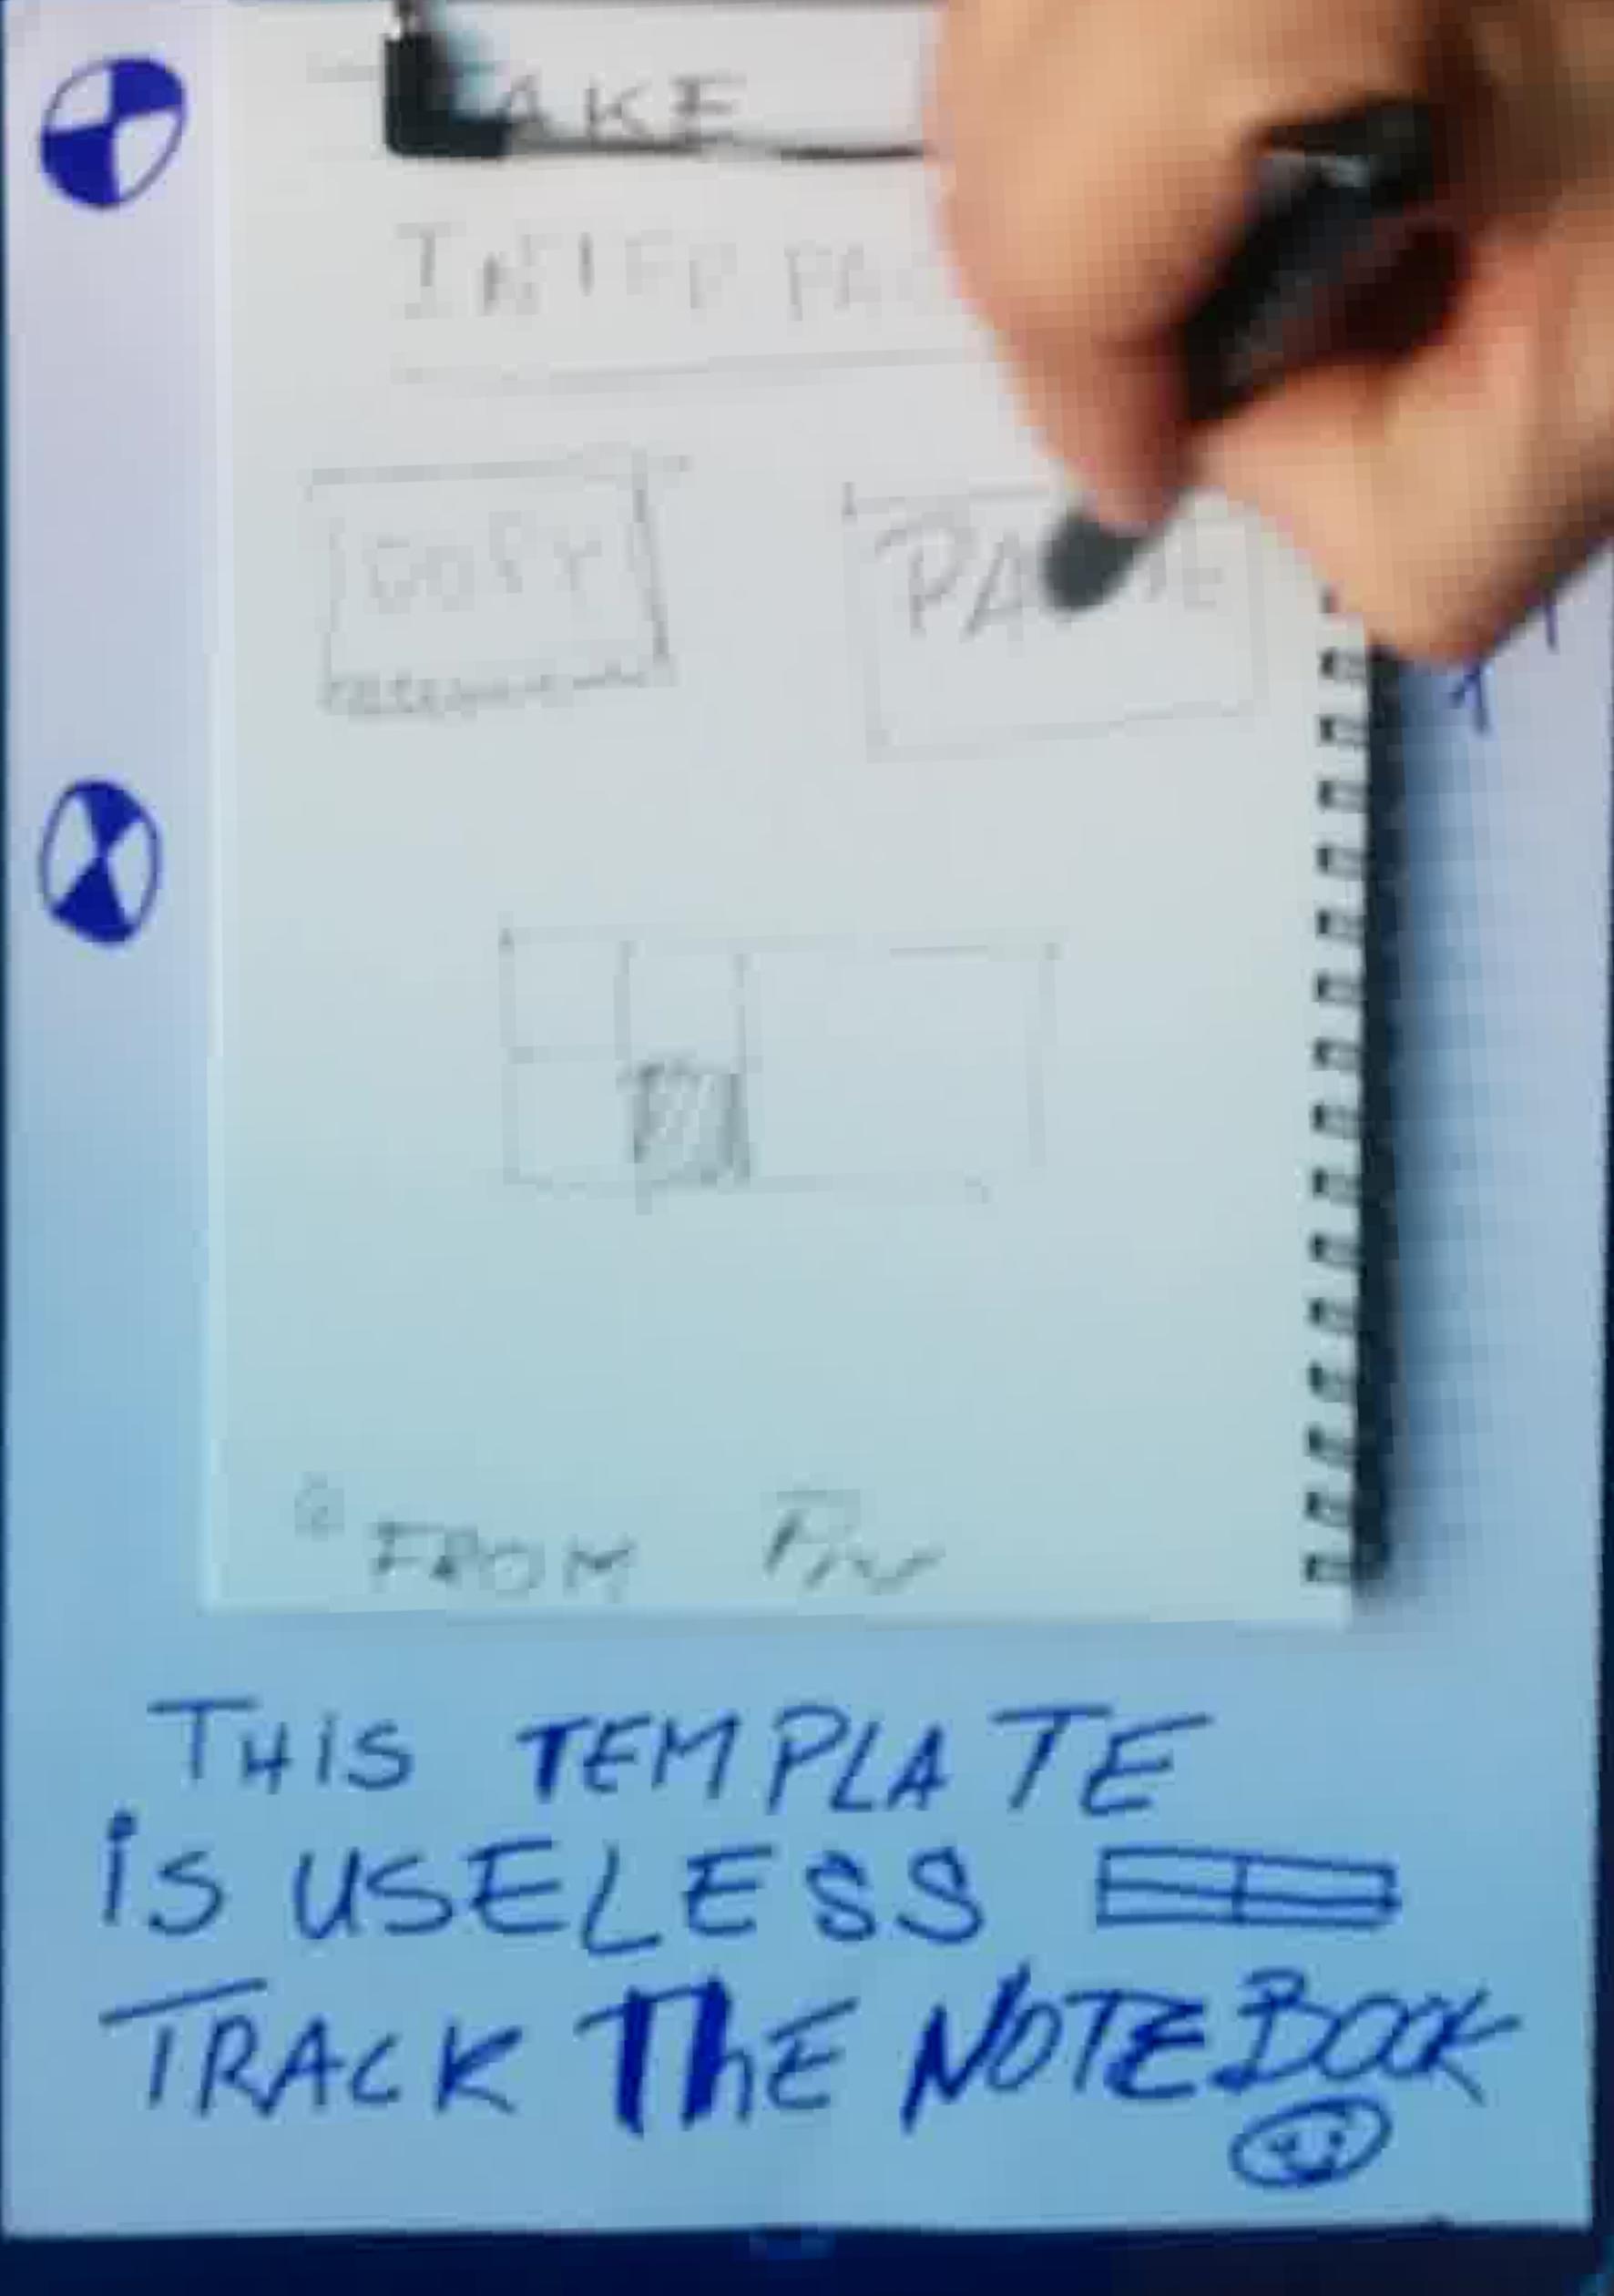 AKE
COPY
FROM
THIS TEMPLATE
iS USELESS
TRACK ThE NOTEBOOK